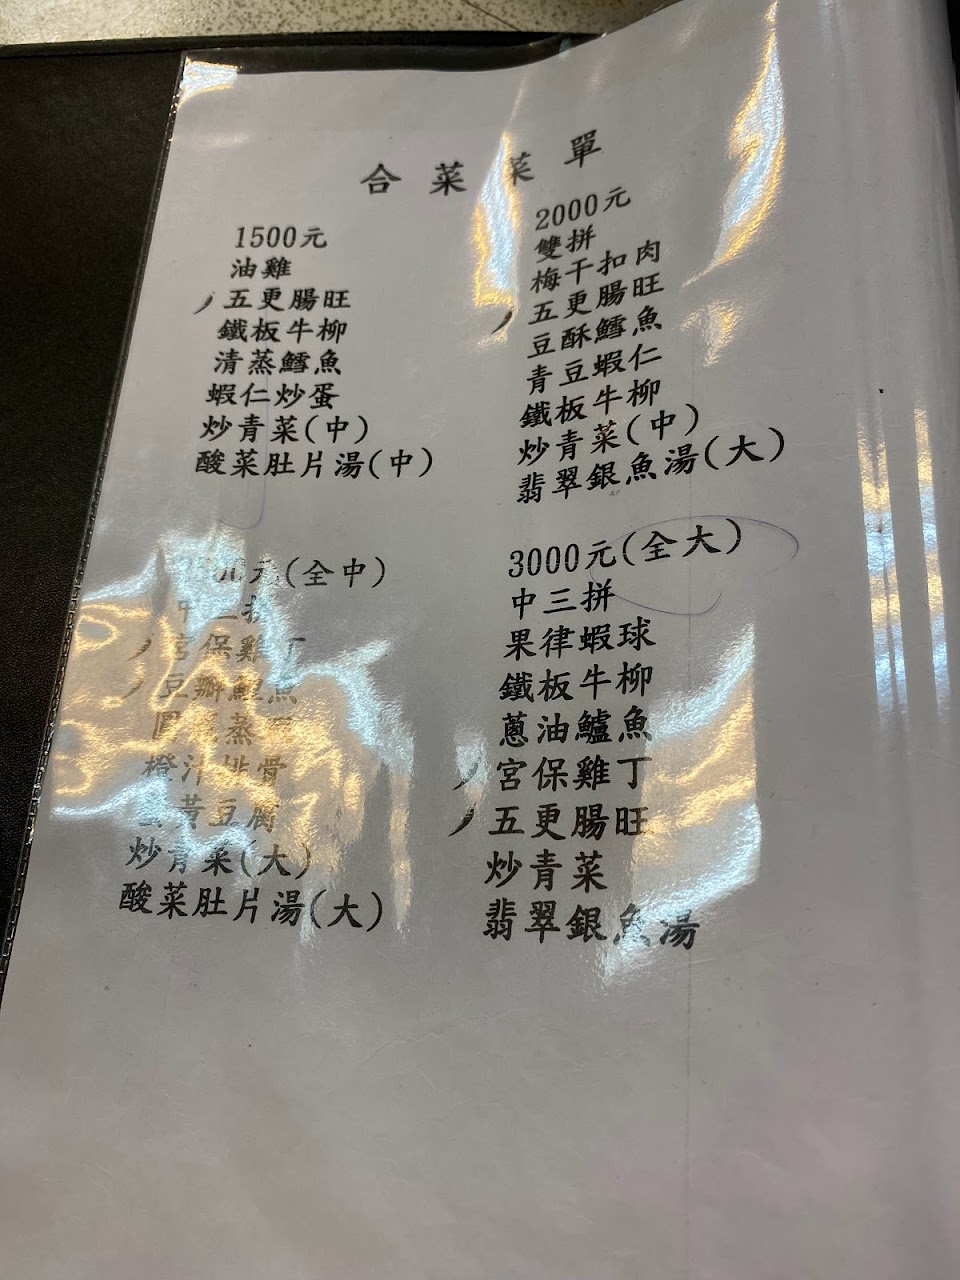 合菜菜單
1500元
油雞
五更腸旺
鐵板牛柳
清蒸鱈魚
蝦仁炒蛋
炒青菜(中)
酸菜肚片湯(中)
2000元
雙拼
梅干扣肉
五更腸旺
豆酥鱈魚
青豆蝦仁
鐵板牛柳
炒青菜(中)
翡翠銀魚湯(大)
元(全中)
宮保雞丁
豆瓣鯉魚
蒸
橙汁排骨
黃豆腐
炒青菜(大)
酸菜肚片湯(大)
3000元(全大)
中三拼
果律蝦球
鐵板牛柳
蔥油鱸魚
宮保雞丁
五更腸旺
炒青菜
翡翠銀魚湯